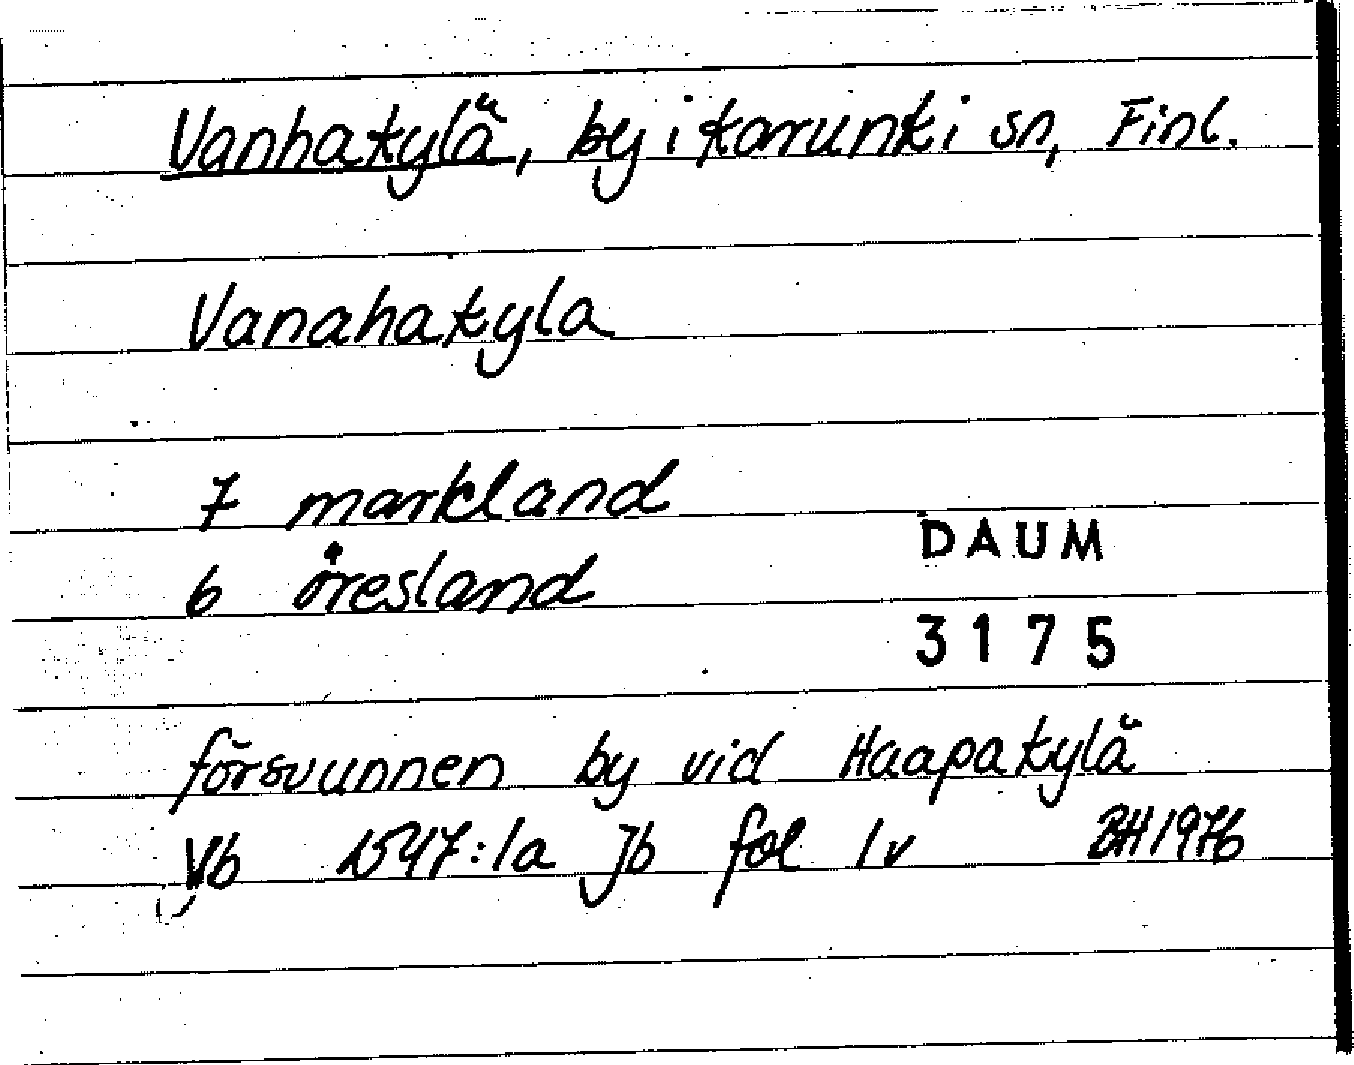 Vanhakylä, by i Karunki sn, Finl.
Vanahakyla
7 markland
6 öresland
DAUM
3175
försvunnen by vid Haapakylä
Vb 1547:1a Jb fol 1v BH 1976